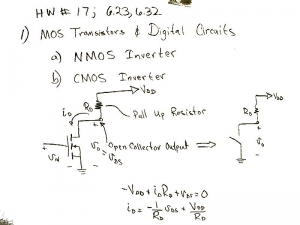 HW # 17; 6.23, 6.32
1) MOS Transistors & Digital Circuits
a) NMOS Inverter
b) CMOS Inverter
VDD
VDD
iD
RD
Pull Up Resistor
RD
+
Open Collector Output ⟹
vo = vDS
vo
vIN
-VDD + iD RD + vDS = 0
iD = -1/RD vDS + VDD/RD